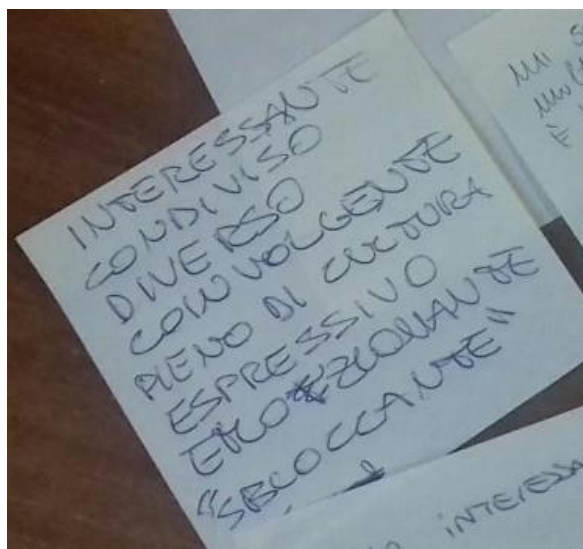 INTERESSANTE
CONDIVISO
DIVERSO
COINVOLGENTE
PIENO DI CULTURA
ESPRESSIVO
EMOZIONANTE
"SBLOCCANTE"
MI
È
INTERESSA